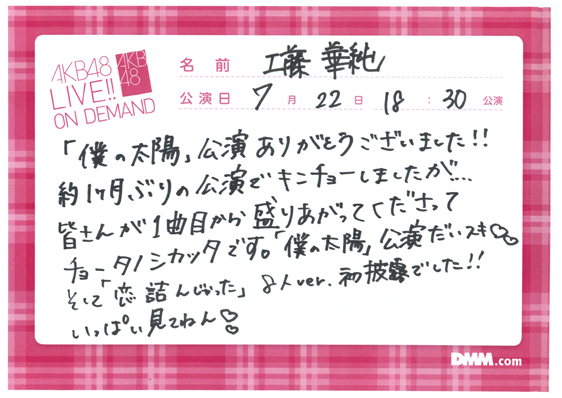 AKB48
LIVE!!
ON DEMAND
AKB
48
名前 工藤 華純
公演日 7月 22日 18:30 公演
「僕の太陽」公演ありがとうございました!!
約1ヶ月ぶりの公演でキンチョーしましたが…
皆さんが1曲目から盛りあがってくださって
チョータノシカッタです。「僕の太陽」公演だいスキ♡♡
そして「恋詰んじゃった」8人ver.初披露でした!!
いっぱい見てねん♡
DMM.com